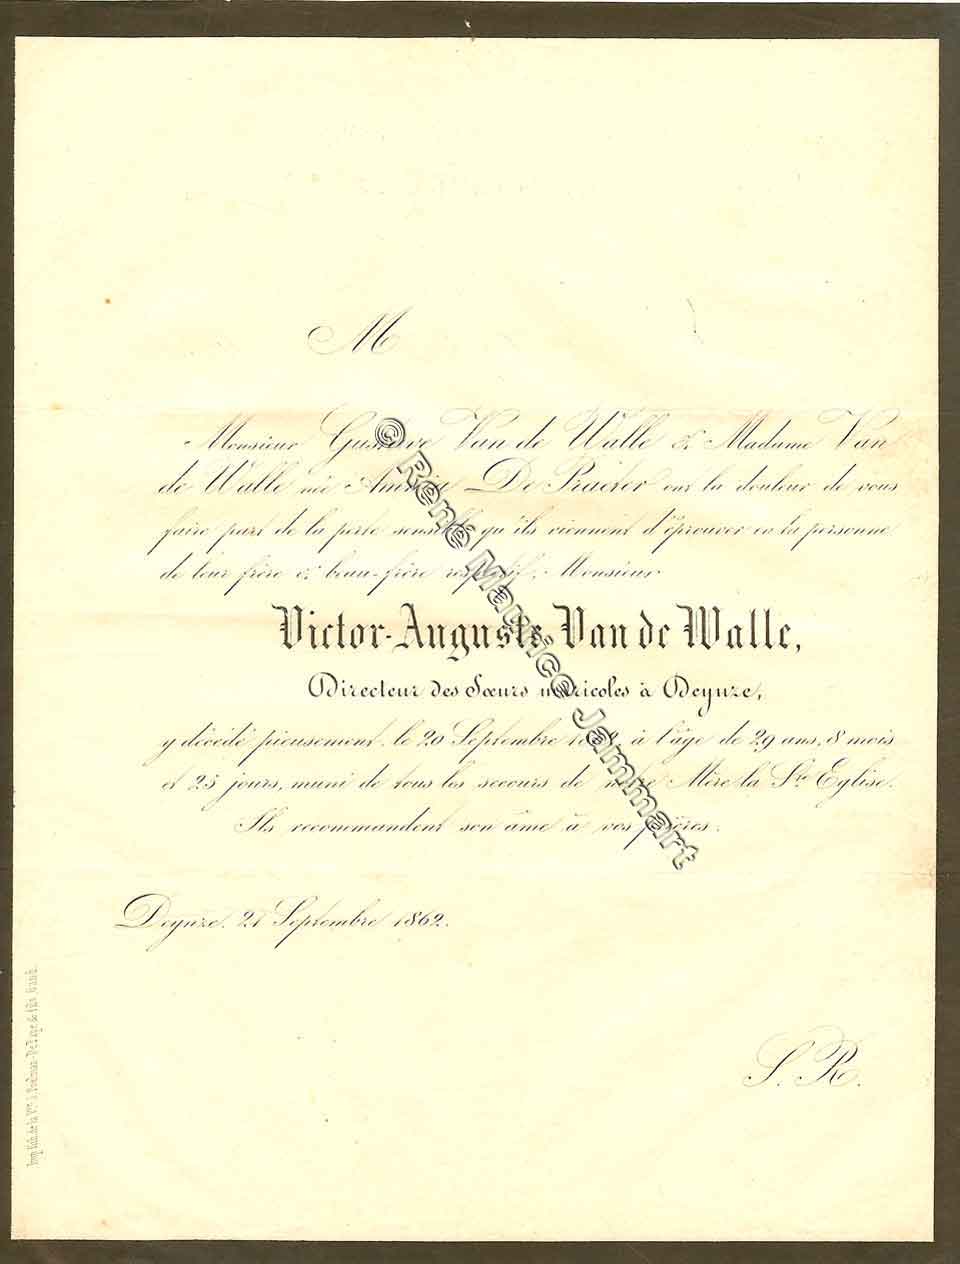 M
Monsieur Gustave Van de Walle & Madame Van
de Walle née De Praeter ont la douleur de vous
faire part de la perte sensible qu'ils viennent d'éprouver en la personne
de leur frère & beau-frère respectif, Monsieur
Victor-Auguste Van de Walle,
Directeur des Sœurs maricoles à Deynze,
y décédé pieusement, le 20 Septembre à l'âge de 29 ans, 8 mois
et 25 jours, muni de tous les secours de notre Mère la Ste Eglise.
Ils recommandent son âme à vos prières.
Deynze, 21 Septembre 1862.
S. R.
© René Maurice Jammart